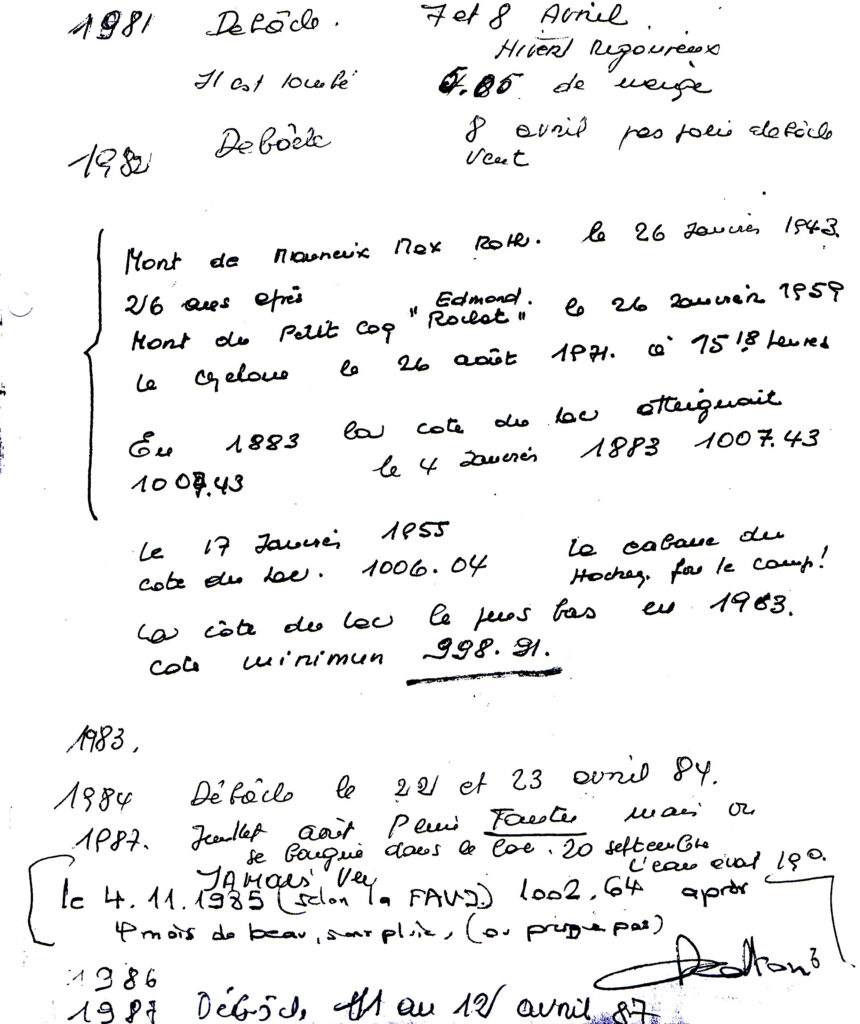 1981 Debâcle. 7 et 8 Avril.
Hivert Rigoureux
Il est tombé 5.85 de neige
1982 Debâcle 8 avril pas jolie debâcle
Vent
Mort de Monsieur Max Roth. le 26 Janvier 1943.
26 ans après
Mort du Petit Coq "Edmond. Rochat" le 26 Janvier 1959
le cyclone le 26 août 1971. à 15 18 heures
En 1883 la cote du lac atteignait
1007.43 le 4 Janvier 1883 1007.43
Le 17 Janvier 1955
cote du lac. 1006.04 La cabane du
Hockey. fou le camp!
La côte du lac le plus bas en 1963.
cote minimun 998.91.
1983.
1984 Débâcle le 22 et 23 avril 84.
1987. Juillet août Pluie mais on
se baigne dans le lac. 20 septembre
JAMAIS Vu L'eau était 19°.
le 4.11.1985 (selon la FAVJ) 1002.64 après
4 mois de beau, sans pluie, (ou presque pas)
1986
1987 Débâcle 11 au 12 avril 87